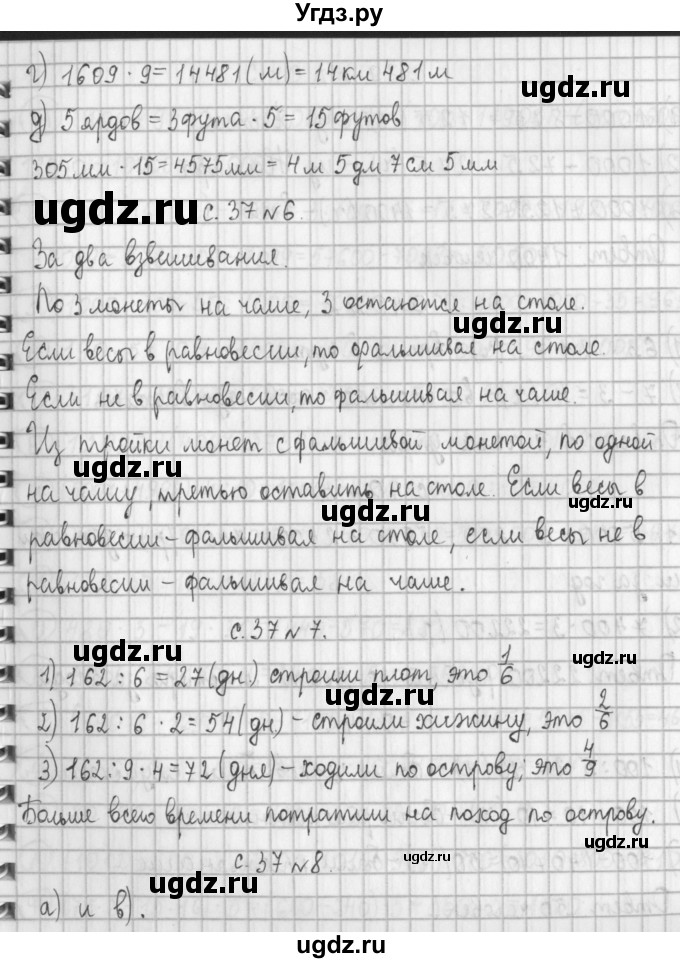 Угдз.ру
г) 1609 · 9 = 14481 (м) = 14 км 481 м
ugdz.ru
д) 5 ярдов = 3 фута · 5 = 15 футов
305 мм · 15 = 4575 мм = 4 м 5 дм 7 см 5 мм
ugdz.ru с. 37 № 6.
За два взвешивания.
По 3 монеты на чаше, 3 остаются на столе.
ugdz.ru
Если весы в равновесии, то фальшивая на столе.
Если не в равновесии, то фальшивая на чаше.
Из тройки монет с фальшивой монетой, по одной
ugdz.ru ugdz.ru
на чашу, третью оставить на столе. Если весы в
ugdz.ru
равновесии – фальшивая на столе, если весы не в
равновесии – фальшивая на чаше.
с. 37 № 7.
ugdz.ru ugdz.ru
1) 162 : 6 = 27 (дн.) строили плот, это 1/6
ugdz.ru
2) 162 : 6 · 2 = 54 (дн) – строили хижину, это 2/6
3) 162 : 9 · 4 = 72 (дня) – ходили по острову, это 4/9
Больше всего времени потратили на поход по острову.
ugdz.ru
с. 37 № 8.
ugdz.ru
ugdz.ru
а) и в).
ugdz.ru